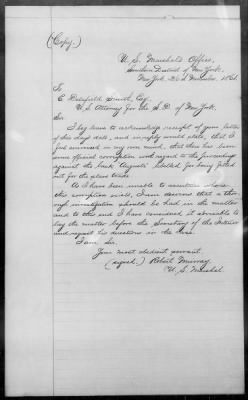 (Copy.)
U. S. Marshal's Office,
Southern District of New York,
New York, 26th December, 1861.
To
E. Delafield Smith, Esq.
U. S. Attorney for the S. D. of New York.
Sir
I beg leave to acknowledge receipt of your letter
of this day's date, and in reply would state, that I
feel assured in my own mind, that there has been
some official corruption with regard to the proceedings
against the bark "Augusta" libelled for being fitted
out for the slave trade.
As I have been unable to ascertain where
this corruption exists, I am desirous that a tho-
rough investigation should be had in the matter
and to this end I have considered it advisable to
lay the matter before the Secretary of the Interior
and request his directions in the case.
I am Sir,
Your most obedient servant
(signed,) Robert Murray
U. S. Marshal